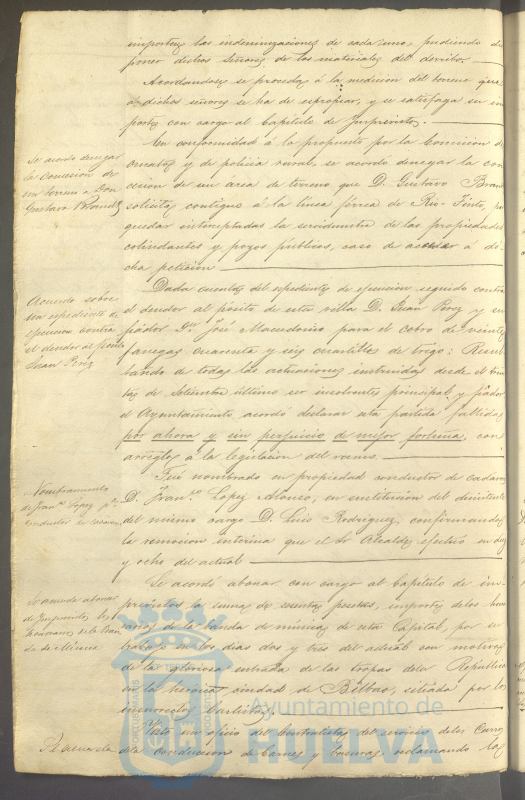 importes las indemnizaciones de cada uno, pudiendo dis
poner dichos Señores de los materiales del derribo.
Acordandose se proceda á la medicion del terreno que
á dichos señores se ha de espropiar, y se satisfaga su im
porte con cargo al Capitulo de Imprevistos.
Se acordo denegar
la Concesion de
un terreno a Don
Gustavo Brandt
En conformidad á lo propuesto por la Comision de
Ornato y de policia rural, se acordo denegar la con
cesion de un area de terreno que D. Gustavo Brand
solicita contiguo á la linea férrea de Rio-Tinto, por
quedar interceptadas la servidumbre de las propiedades
colindantes y pozos públicos, caso de acceder á di
cha peticion
Acuerdo sobre
un espediente de
ejecucion contra
el deudor al pósito
Juan Perez
Dada cuenta del espediente de ejecucion seguido contra
el deudor al pósito de esta villa D. Juan Perez y su
fiador Dn. José Macedonio para el cobro de veinte
fanegas cuarenta y seis cuartillos de trigo: Resul
tando de todas las actuaciones instruidas desde el
tas de Setiembre último ser insolventes principal y fiador
el Ayuntamiento acordó declarar esta partida fallida
por ahora y sin perjuicio de mejor fortuna, con
arreglo á la legislacion del ramo.
Nombramiento
de Fran.co Lopez pa.
conductor de cadaveres
Fué nombrado en propiedad conductor de cadaveres
D. Fran.co Lopez Alonso, en sustitucion del dimitente
del mismo cargo D. Luis Rodriguez, confirmando
la remocion interina que el Sr Alcalde efectuó en diez
y ocho del actual
Se acuerda abonar
de Imprevistos los
honorarios de la Ban
da de Música
Se acordó abonar con cargo al Capitulo de im
previstos la suma de sesenta pesetas, importe de los hono
rarios de la banda de música de esta Capital, por su
trabajo en los dias dos y tres del actual con motivo
de la gloriosa entrada de las tropas de la República
en la heroica ciudad de Bilbao, sitiada por los
insurrectos Carlistas.
Se acuerda
Visto un oficio del Contratista del servicio de los Carros
de la conduccion de Carnes y basuras reclamando las
Ayuntamiento de
HUELVA